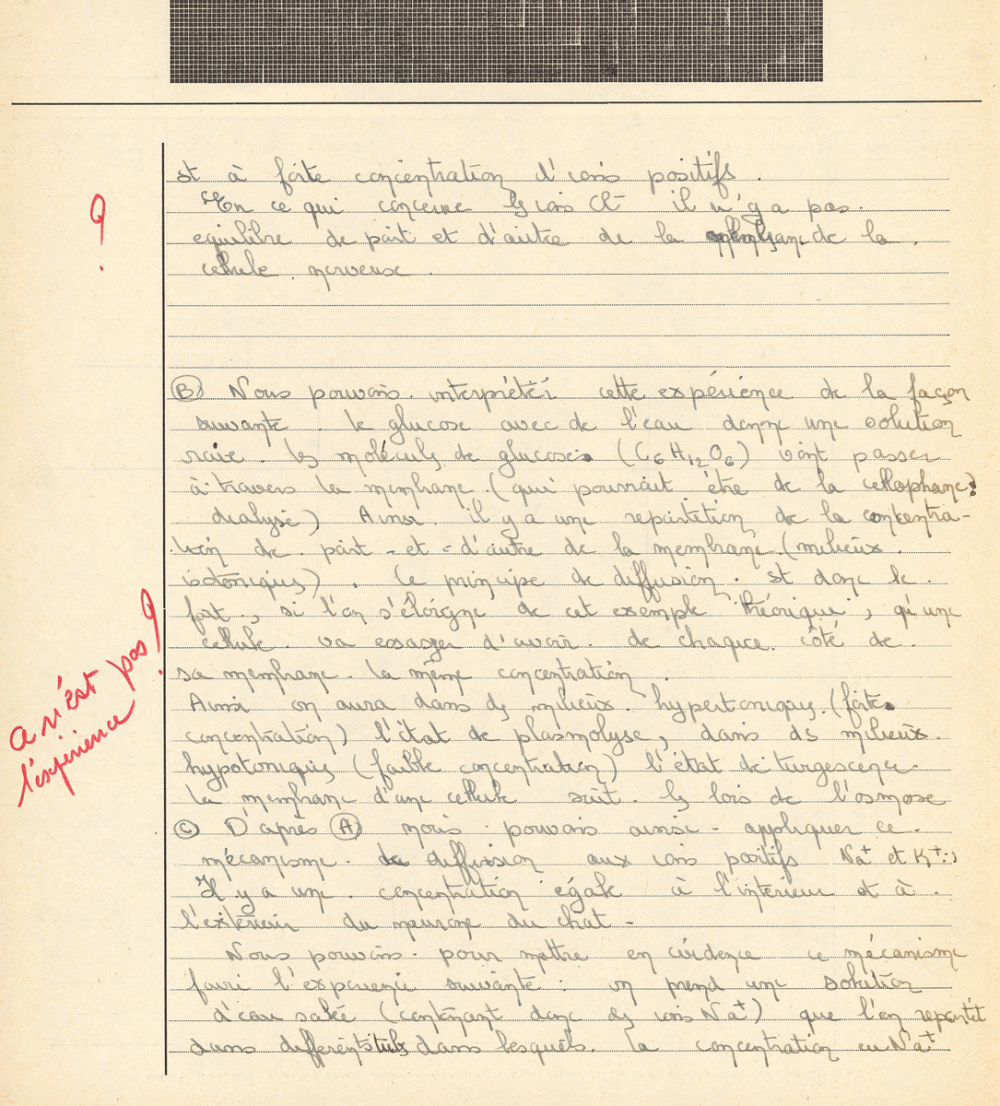 est à forte concentration d'ions positifs.
En ce qui concerne les ions Cl⁻ il n'y a pas
?
equilibre de part et d'autre de la membrane de la
cellule nerveuse.
Ⓑ Nous pouvons interpréter cette expérience de la façon
suivante. le glucose avec de l'eau donne une solution
vraie. les molécules de glucose (C₆H₁₂O₆) vont passer
à travers la membrane (qui pourrait être de la cellophane
dialyse) Ainsi il y a une repartition de la concentra-
tion de part - et - d'autre de la membrane (milieux
isotoniques). Le principe de diffusion est donc le
fait, si l'on s'éloigne de cet exemple "théorique", qu'une
cellule va essayer d'avoir de chaque côté de
sa membrane la même concentration.
ce n'est pas l'expérience ?
Ainsi on aura dans des milieux hypertoniques (forte
concentration) l'état de plasmolyse, dans des milieux
hypotoniques (faible concentration) l'état de turgescence.
La membrane d'une cellule suit les lois de l'osmose
Ⓒ D'après Ⓐ nous pouvons ainsi appliquer ce
mécanisme de diffusion aux ions positifs Na⁺ et K⁺:
Il y a une concentration égale à l'intérieur et à
l'extérieur du neurone du chat -
Nous pouvons pour mettre en évidence ce mécanisme
faire l'experience suivante : on prend une solution
d'eau salée (contenant donc des ions Na⁺) que l'on repartit
dans differents tubes dans lesquels la concentration en Na⁺